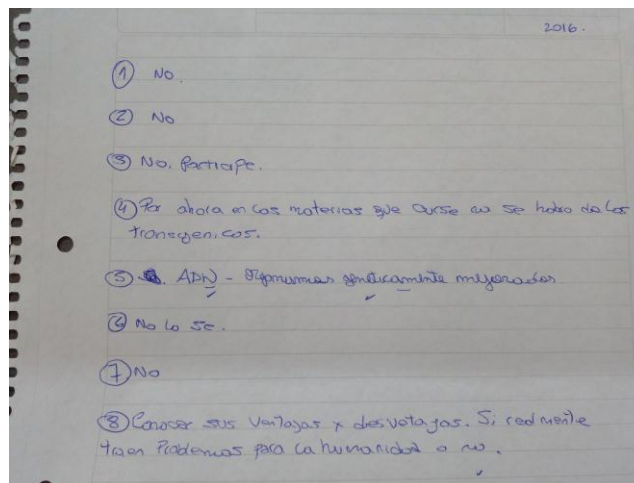 2016.
① No.
② No
③ No. Participe.
④ Por ahora en las materias que curse no se hablo de los
transgenicos.
⑤ ADN - Organismos genéticamente mejorados.
⑥ No lo se.
⑦ No
⑧ Conocer sus Ventajas y desvetajas. Si realmente
traen Problemas para la humanidad o no.